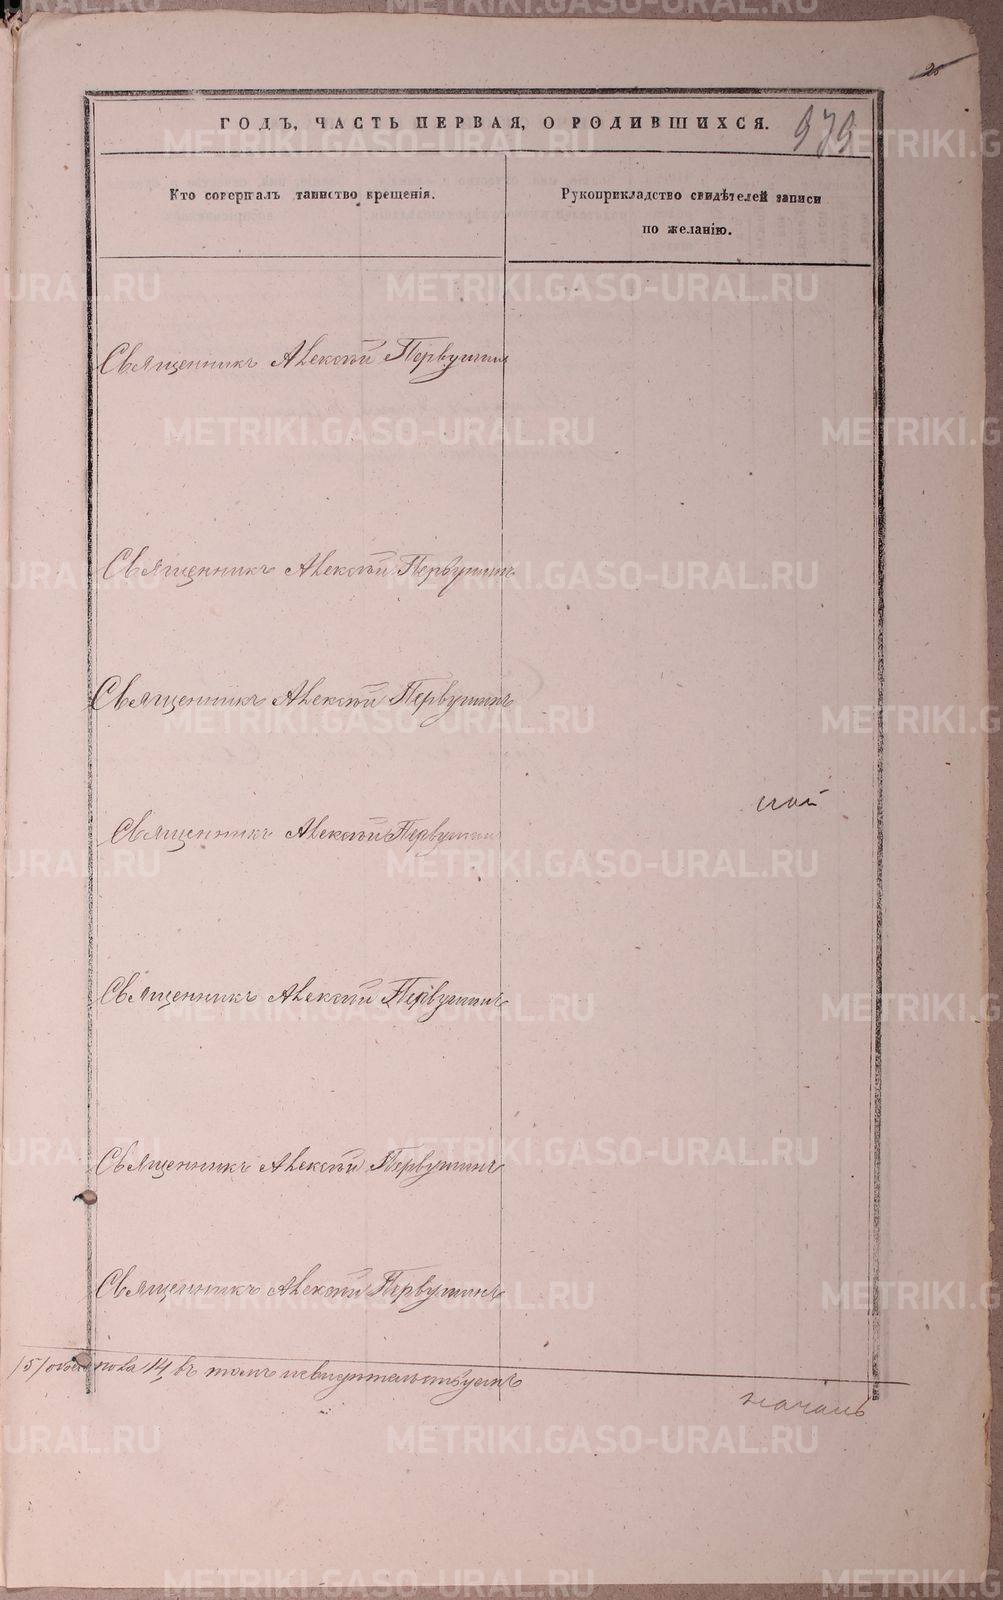 979
ГОДЪ, ЧАСТЬ ПЕРВАЯ, О РОДИВШИХСЯ.
Кто совершалъ таинство крещенія.
Рукоприкладство свидѣтелей записи
по желанію.
Священникъ Алексѣй Первушинъ
Священникъ Алексѣй Первушинъ
Священникъ Алексѣй Первушинъ
Священникъ Алексѣй Первушинъ
Священникъ Алексѣй Первушинъ
Священникъ Алексѣй Первушинъ
Священникъ Алексѣй Первушинъ
14 въ томъ и свидѣтельствуемъ
METRIKI.GASO-URAL.RU